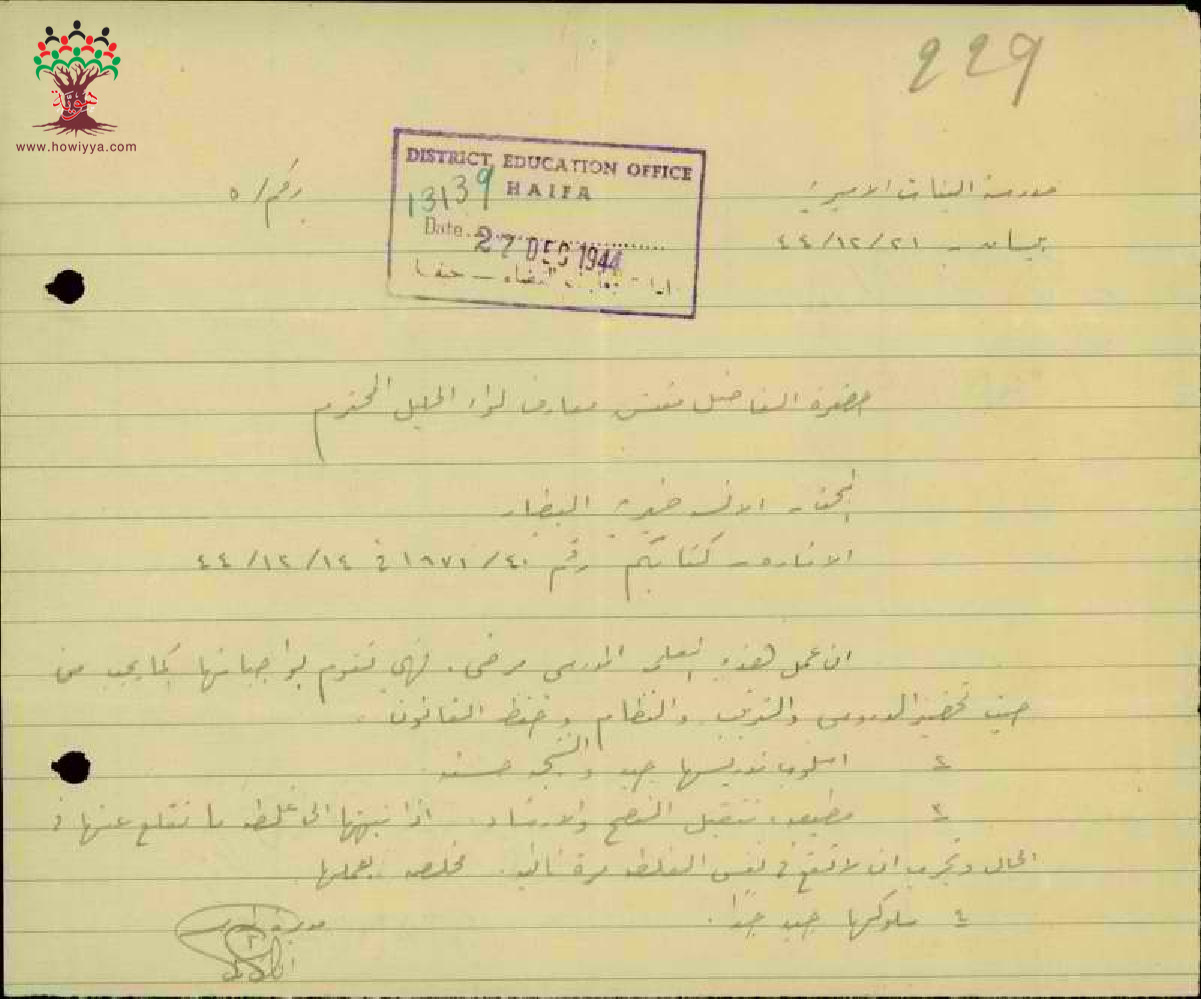 229
هوية
www.howiyya.com
DISTRICT EDUCATION OFFICE
HAIFA
13139
Date 27 DEC 1944
حيفا
مدرسة البنات الاميرية رقم/ ٥
بيسان - ٤٤/١٢/٢١
حضرة الفاضل مفتش معارف لواء الجليل المحترم
الآنسة خيرية البيطار
الاشارة - كتابكم رقم ١٩٧١/٤٠ في ٤٤/١٢/١٤
ان عمل هذه المعلمة المدرسي مرضي. فهي تقوم بواجباتها كما يجب من
حيث تحضير الدروس والترتيب والنظام وحفظ القانون.
٢ اسلوب تدريسها جيد والنتيجة حسنة
٣ مطيعة، تتقبل النصح والارشاد. اذا نبهتها الى غلطة ما تقلع عنها في
الحال وتجرب ان لا تقع في نفس الغلطة مرة ثانية. مخلصة بعملها.
٤ سلوكها جيد جدا.
مديرة المدرسة